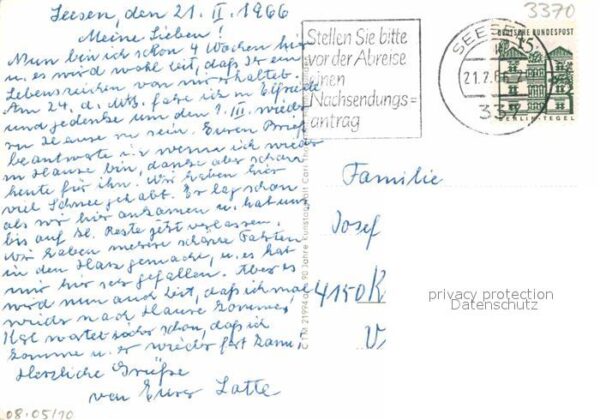 Seesen, den 21. II. 1966
Meine Lieben!
Nun bin ich schon 4 Wochen hier
u. es wird wohl Zeit, daß Ihr ein
Lebenszeichen von mir erhaltet.
Am 24. d. Mts. fahre ich m. Elfriede
und gedenke um den 1. III. wieder
zu Hause zu sein. Euren Brief
beantworte ich wenn ich wieder
zu Hause bin, danke aber schon
heute für ihn. Wir haben hier
viel Schnee gehabt. Er lag schon
als wir hier ankamen u. hat uns
bis auf kl. Reste jetzt verlassen.
Wir haben mehrere schöne Fahrten
in den Harz gemacht, u. es hat
mir hier sehr gefallen. Aber es
wird nun auch Zeit, daß ich mal
wieder nach Hause komme,
wartet schon, daß ich
komme u. er wieder fort kann.
Herzliche Grüße
von Eurer Lotte
08.05/10
3370
Stellen Sie bitte
vor der Abreise
einen
Nachsendungs=
antrag
SEESEN
21.2.66
DEUTSCHE BUNDESPOST
15
BERLIN-TEGEL
90 Jahre Kunstanstalt Carl
Familie
Josef
4150 K
V
privacy protection
Datenschutz